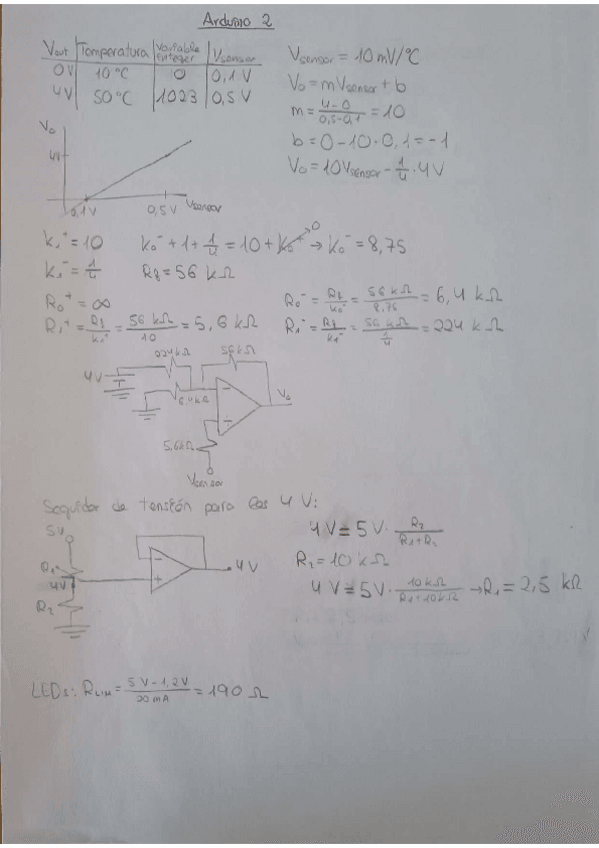 Arduino 2
Vout | Temperatura | Variable integer | Vsensor
0V | 10 °C | 0 | 0,1 V
4V | 50 °C | 1023 | 0,5 V
Vsensor = 10 mV/°C
Vo = mVsensor + b
m = (4-0)/(0,5-0,1) = 10
b = 0 - 10 · 0,1 = -1
Vo = 10Vsensor - 1/4 · 4V
Vo
4V
0,1V
0,5 V
Vsensor
k1+ = 10
ko- + 1 + 1/4 = 10 + ko+ → ko- = 8,75
0
k1- = 1/4
Rf = 56 kΩ
Ro+ = ∞
Ro- = Rf/ko- = 56 kΩ/8,75 = 6,4 kΩ
R1+ = Rf/k1+ = 56 kΩ/10 = 5,6 kΩ
R1- = Rf/k1- = 56 kΩ/(1/4) = 224 kΩ
56 kΩ
4V
6,4kΩ
Vo
5,6kΩ
Vsensor
Seguidor de tensión para los 4 V:
5V
R1
4V
R2
4V
4V = 5V · R2/(R1+R2)
R2 = 10 kΩ
4V = 5V · 10kΩ/(R1+10kΩ) → R1 = 2,5 kΩ
LEDs: RLIM = (5 V - 1,2V)/20 mA = 190 Ω